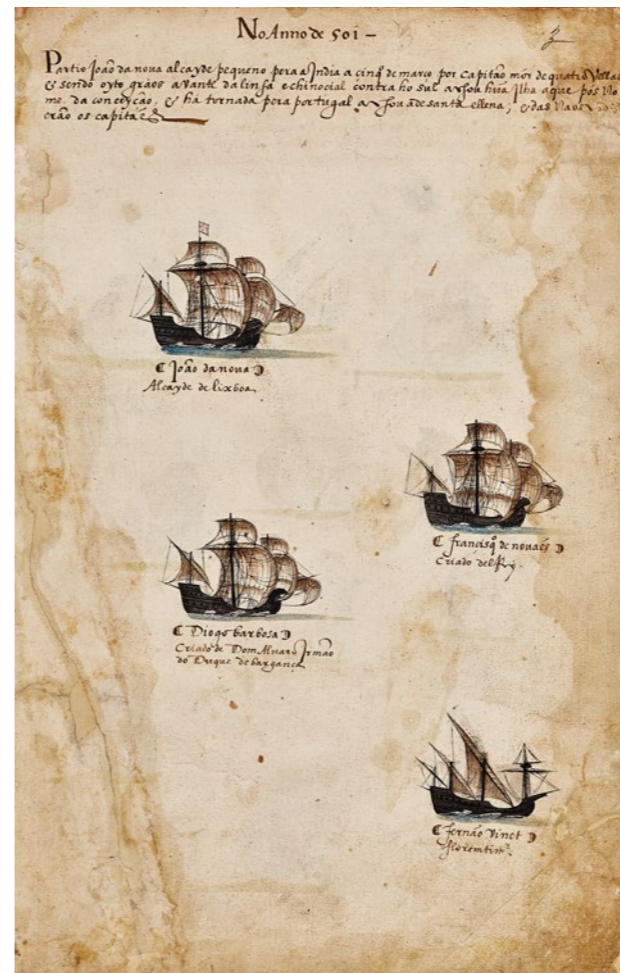 No Anno de 501 –
2
Partio João da nova alcayde pequeno pera a India a cinqº de março por capitão mór de quatro Vellas
& sendo oyto graos avante da linha echinocial contra ho sul achou hũa Ilha a que pôs No
me. da conceyção, & ha tornada pera portugal achou a de santa ellena; & das Naos
erão os capitães
João da nova
Alcayde de lixboa
francisqº de novaes
Criado del Rey
Diogo barbosa
Criado de Dom Alvaro Irmão
do Duque de bargança
fernão Vinet
florentin